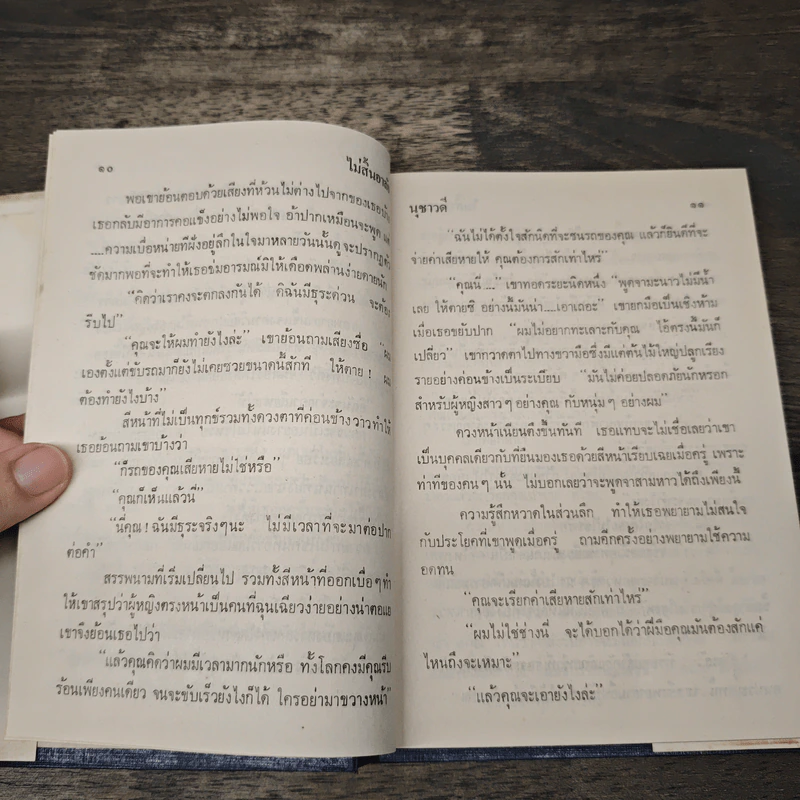 ๑๐
ไม่สิ้นอาลัย
พอเขาย้อนตอบด้วยเสียงที่ห้วนไม่ต่างไปจากของเธอ
เธอกลับมีอาการคอแข็งอย่างไม่พอใจ อ้าปากเหมือนจะพูด
.....ความเบื่อหน่ายที่ฝังอยู่ลึกในใจมาหลายวันนั้นดูจะปรากฏตัว
ชัดมากพอที่จะทำให้เธอข่มอารมณ์มิให้เดือดพล่านง่ายดายนัก
“คิดว่าเราคงจะตกลงกันได้ ดิฉันมีธุระด่วน จะต้อง
รีบไป”
“คุณจะให้ผมทำยังไงล่ะ” เขาย้อนถามเสียงซื่อ “ผม
เองตั้งแต่ขับรถมาก็ยังไม่เคยซวยขนาดนี้สักที ให้ตาย! ผม
ต้องทำยังไงบ้าง”
สีหน้าที่ไม่เป็นทุกข์รวมทั้งดวงตาที่ค่อนข้างวาวทำให้
เธอย้อนถามเขาบ้างว่า
“ก็รถของคุณเสียหายไม่ใช่หรือ”
“คุณก็เห็นแล้วนี่”
“นี่คุณ! ฉันมีธุระจริงๆนะ ไม่มีเวลาที่จะมาต่อปาก
ต่อคำ”
สรรพนามที่เริ่มเปลี่ยนไป รวมทั้งสีหน้าที่ออกเบื่อๆทำ
ให้เขาสรุปว่าผู้หญิงตรงหน้าเป็นคนที่ฉุนเฉียวง่ายอย่างน่าตอแย
เขาจึงย้อนเธอไปว่า
“แล้วคุณคิดว่าผมมีเวลามากนักหรือ ทั้งโลกคงมีคุณรีบ
ร้อนเพียงคนเดียว จนจะขับเร็วยังไงก็ได้ ใครอย่ามาขวางหน้า”
นุชาวดี
๑๑
“ฉันไม่ได้ตั้งใจสักนิดที่จะชนรถของคุณ แล้วก็ยินดีที่จะ
จ่ายค่าเสียหายให้ คุณต้องการสักเท่าไหร่”
“คุณนี่ ....” เขาทอดระยะนิดหนึ่ง “พูดจามะนาวไม่มีน้ำ
เลย ให้ตายซิ อย่างนี้มันน่า.....เอาเถอะ” เขายกมือเป็นเชิงห้าม
เมื่อเธอขยับปาก “ผมไม่อยากทะเลาะกับคุณ ไอ้ตรงนี้มันก็
เปลี่ยว” เขากวาดตาไปทางขวามือซึ่งมีแต่ต้นไม้ใหญ่ปลูกเรียง
รายอย่างค่อนข้างเป็นระเบียบ “มันไม่ค่อยปลอดภัยนักหรอก
สำหรับผู้หญิงสาวๆอย่างคุณ กับหนุ่มๆอย่างผม”
ดวงหน้าเนียนตึงขึ้นทันที เธอแทบจะไม่เชื่อเลยว่าเขา
เป็นบุคคลเดียวกับที่ยืนมองเธอด้วยสีหน้าเรียบเฉยเมื่อครู่ เพราะ
ท่าทีของคนๆนั้น ไม่บอกเลยว่าจะพูดจาสามหาวได้ถึงเพียงนี้
ความรู้สึกหวาดในส่วนลึก ทำให้เธอพยายามไม่สนใจ
กับประโยคที่เขาพูดเมื่อครู่ ถามอีกครั้งอย่างพยายามใช้ความ
อดทน
“คุณจะเรียกค่าเสียหายสักเท่าไหร่”
“ผมไม่ใช่ช่างนี่ จะได้บอกได้ว่าฝีมือคุณมันต้องสักแค่
ไหนถึงจะเหมาะ”
“แล้วคุณจะเอายังไงล่ะ”